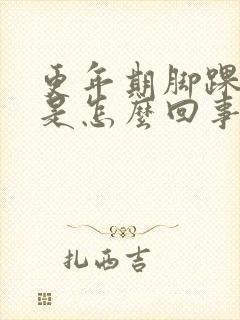 更年期脚踝
是怎麼回事
扎西吉